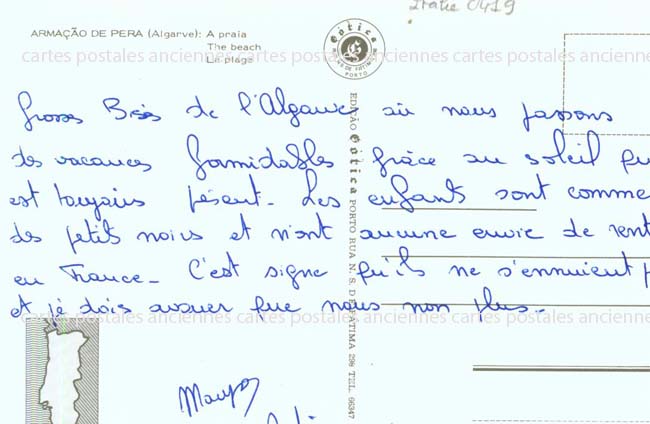 Italie 0419
ARMAÇÃO DE PERA (Algarve): A praia
The beach
La plage
Gótica
PORTO
cartes postales anciennes cartes postales anciennes cartes postales anciennes
Grosses Bises de l'Algarve où nous passons
des vacances formidables grâce au soleil qu
est toujours présent. Les enfants sont comme
des petits noirs et n'ont aucune envie de rent
en France. C'est signe qu'ils ne s'ennuient p
et je dois avouer que nous non plus.
cartes postales anciennes cartes postales anciennes cartes postales anciennes
EDIÇÃO Gótica PORTO RUA N. S. DE FÁTIMA, 298 TEL. 66347